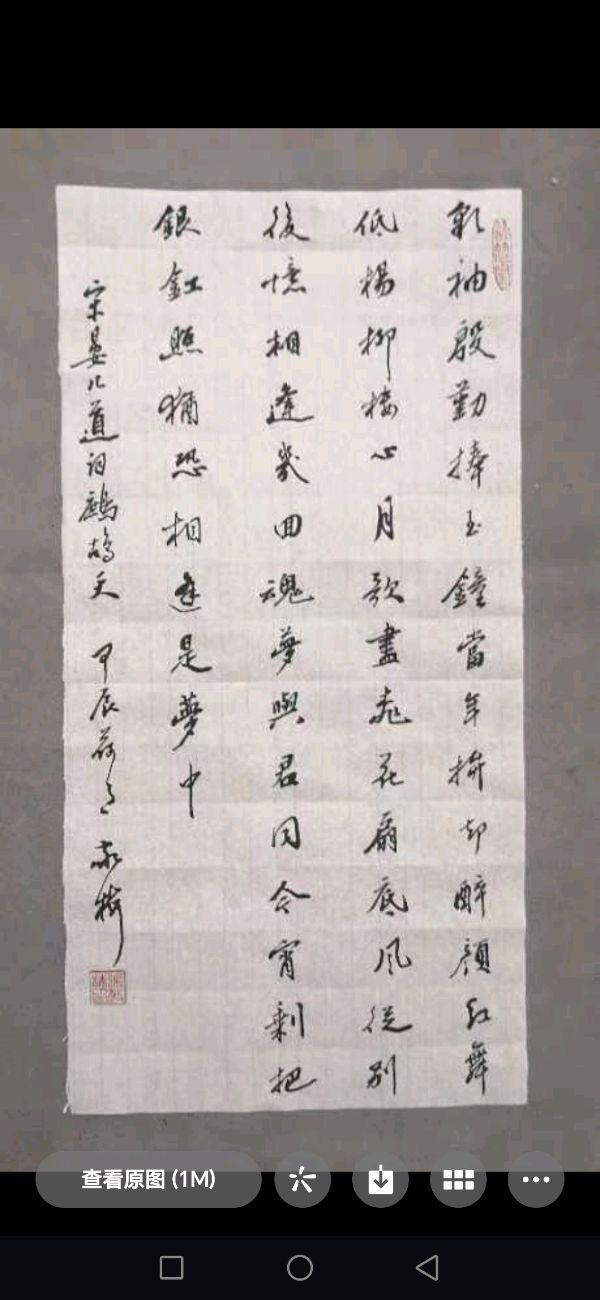 彩袖殷勤捧玉鐘當年拚却醉顏紅舞
低楊柳樓心月歌盡桃花扇底風從別
後憶相逢幾回魂夢與君同今宵剩把
銀釭照猶恐相逢是夢中
宋晏几道詞鷓鴣天 甲辰荷月
查看原图 (1M)